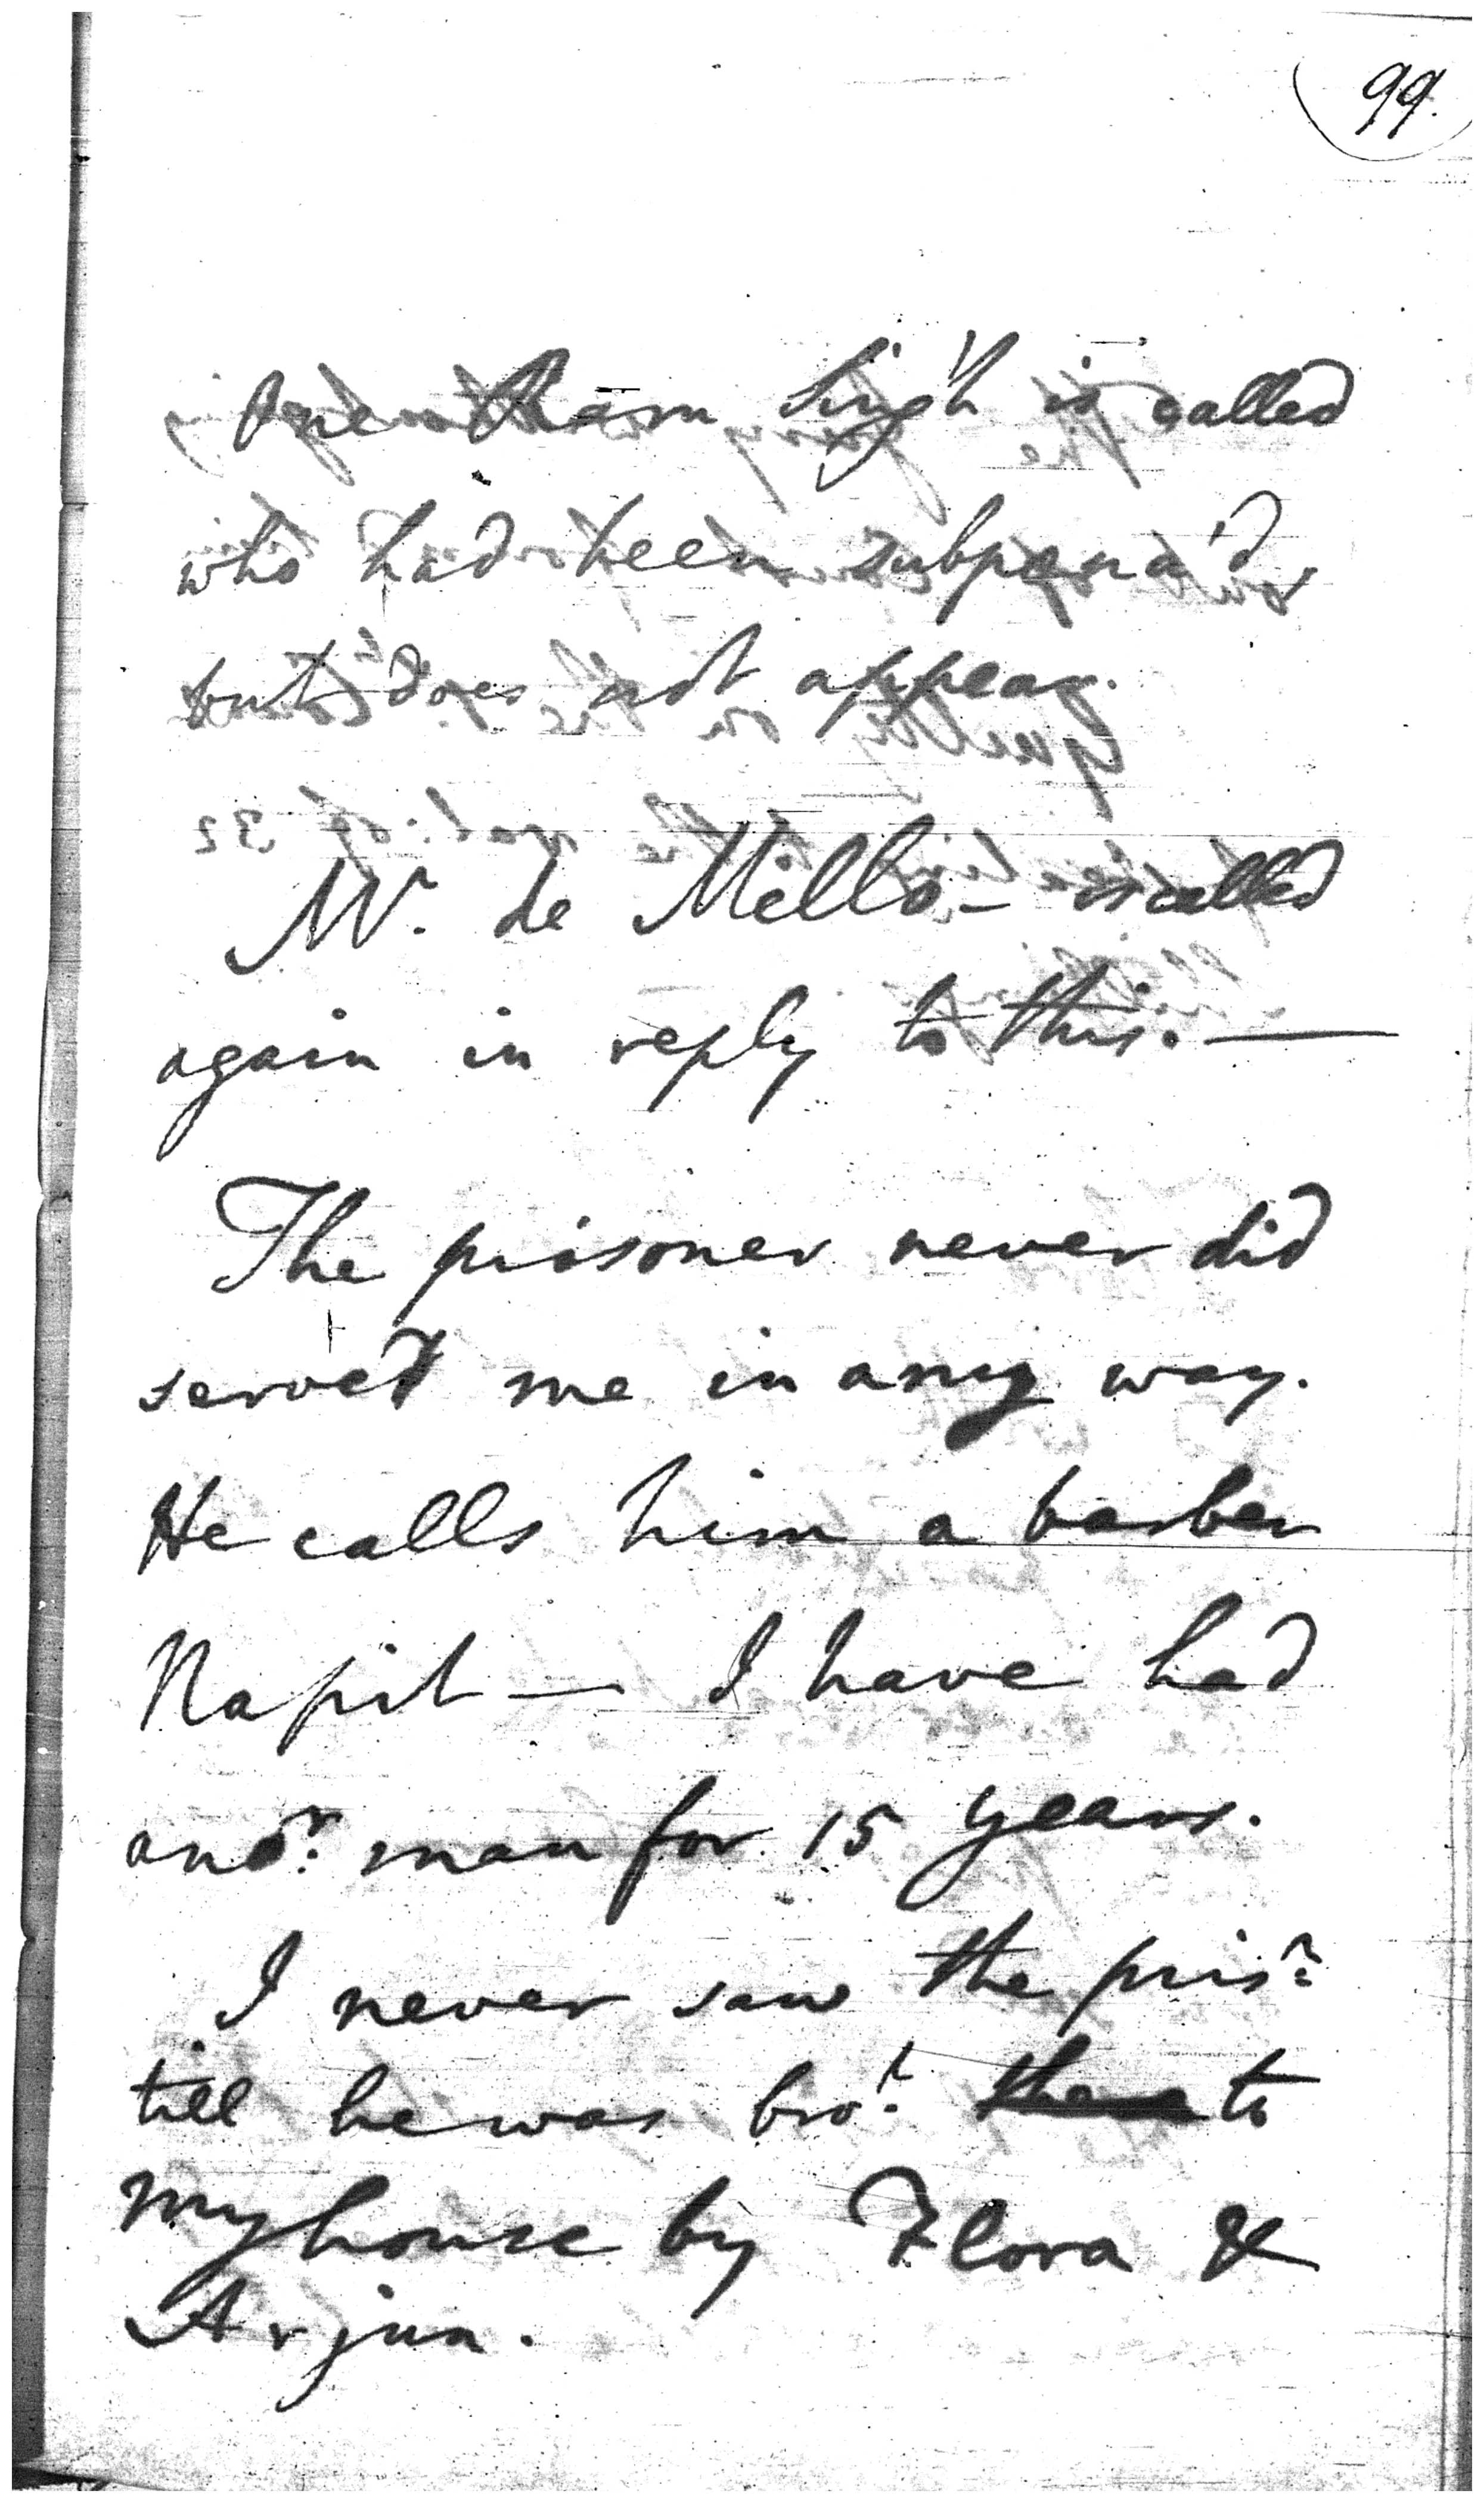 99.
One Ram Singh is called
who had been subpœna'd
but does not appear.
Mr. de Mello - is called
again in reply to this. —
The prisoner never did
served me in any way.
He calls him a barber
Napit — I have had
anor. man for 15 years.
I never saw the prisr.
till he was brot. to
my house by Flora &
Arjun.